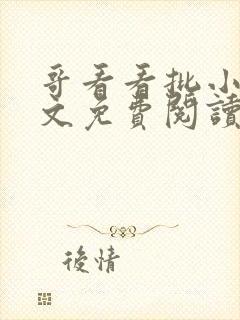 哥看看批小
文免費閱讀
後情